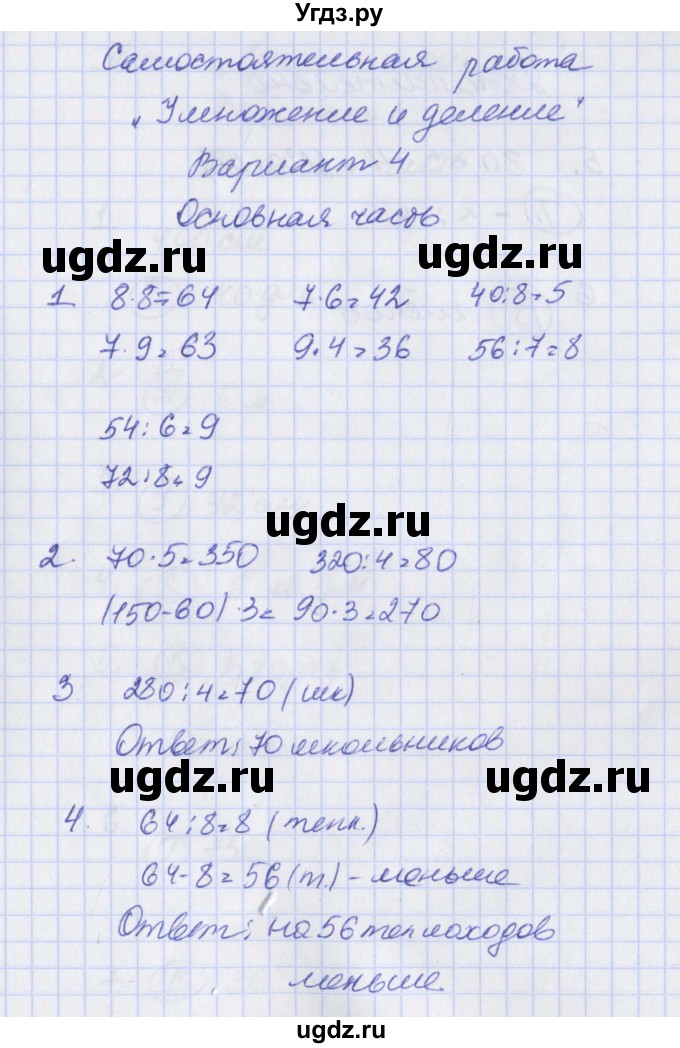 Угдз.ру
Самостоятельная работа
"Умножение и деление"
Вариант 4
Основная часть
ugdz.ru ugdz.ru
1 8·8=64 7·6=42 40:8=5
7·9=63 9·4=36 56:7=8
54:6=9
72:8=9
ugdz.ru
2. 70·5=350 320:4=80
(150-60)·3= 90·3=270
3 280:4=70 (шк)
Ответ: 70 школьников
ugdz.ru ugdz.ru
4. 64:8=8 (тепл.)
64-8=56 (т.) - меньше
Ответ: на 56 теплоходов
меньше.
ugdz.ru